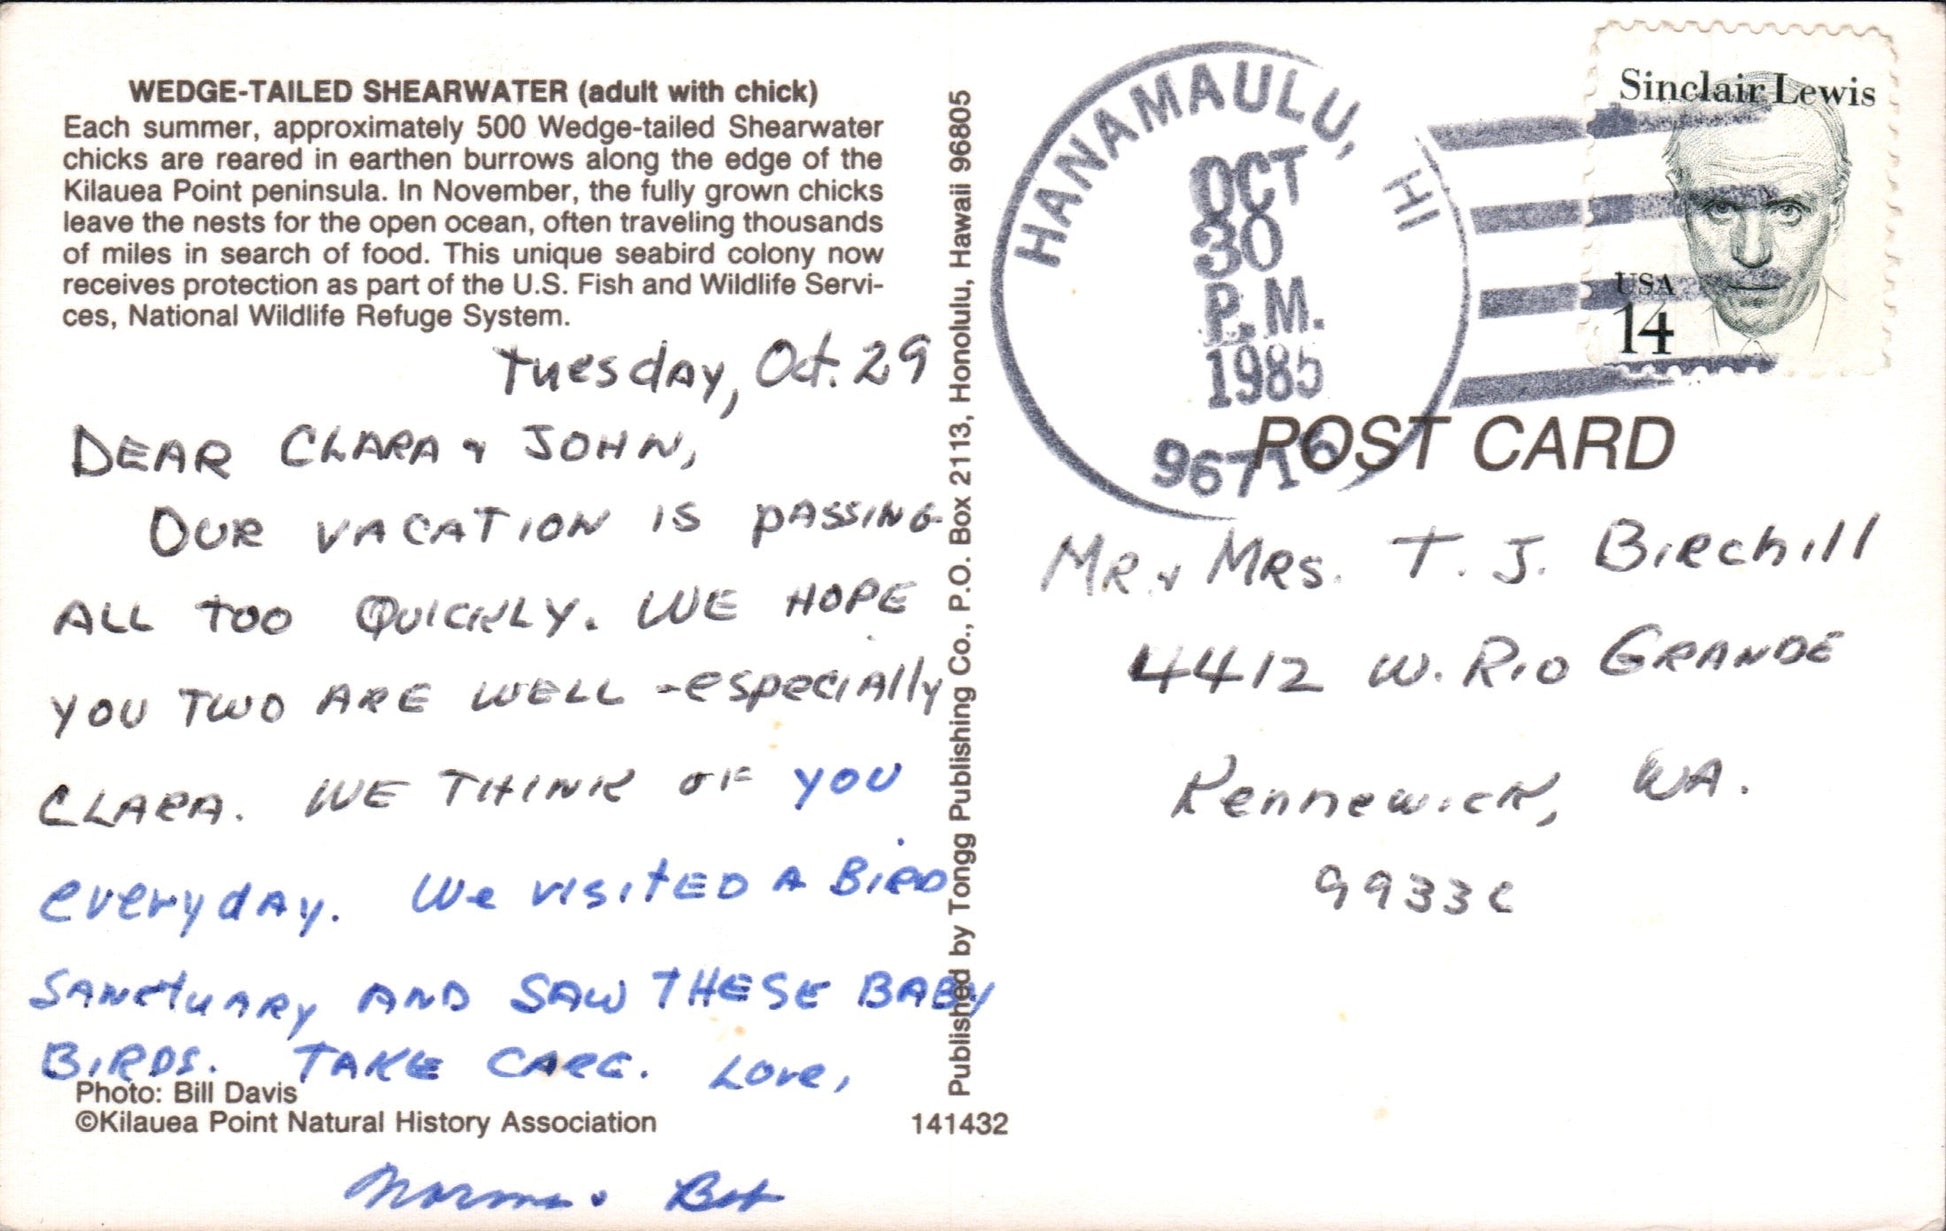 WEDGE-TAILED SHEARWATER (adult with chick)
Each summer, approximately 500 Wedge-tailed Shearwater
chicks are reared in earthen burrows along the edge of the
Kilauea Point peninsula. In November, the fully grown chicks
leave the nests for the open ocean, often traveling thousands
of miles in search of food. This unique seabird colony now
receives protection as part of the U.S. Fish and Wildlife Servi-
ces, National Wildlife Refuge System.
Tuesday, Oct. 29
DEAR CLARA & JOHN,
OUR VACATION IS PASSING
ALL TOO QUICKLY. WE HOPE
YOU TWO ARE WELL - especially
CLARA. WE THINK OF YOU
everyday. We visited A Bird
Sanctuary AND SAW THESE BABY
BIRDS. TAKE CARE. Love,
Photo: Bill Davis
©Kilauea Point Natural History Association
141432
Norma & Bob
Published by Tongg Publishing Co., P.O. Box 2113, Honolulu, Hawaii 96805
HANAMAULU, HI
OCT
30
P.M.
1985
96715
Sinclair Lewis
USA
14
POST CARD
MR. & MRS. T. J. Birchill
4412 W. Rio GRANDE
Kennewick, WA.